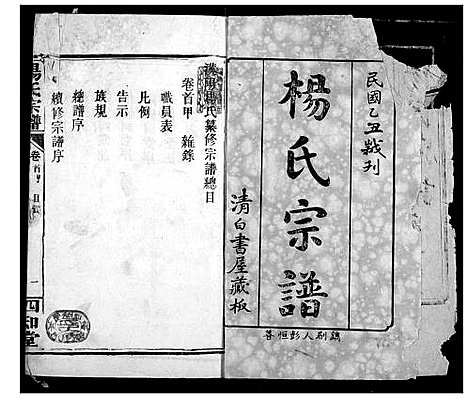 民國乙丑㨗刊
楊氏宗譜
清白書屋藏板
鐫刷人彭恒善
漢陽楊氏纂修宗譜總目
卷首甲 雜錄
職員表
凡例
告示
族規
總譜序
續修宗譜序
楊氏宗譜
卷首甲
目錄
一
四知堂